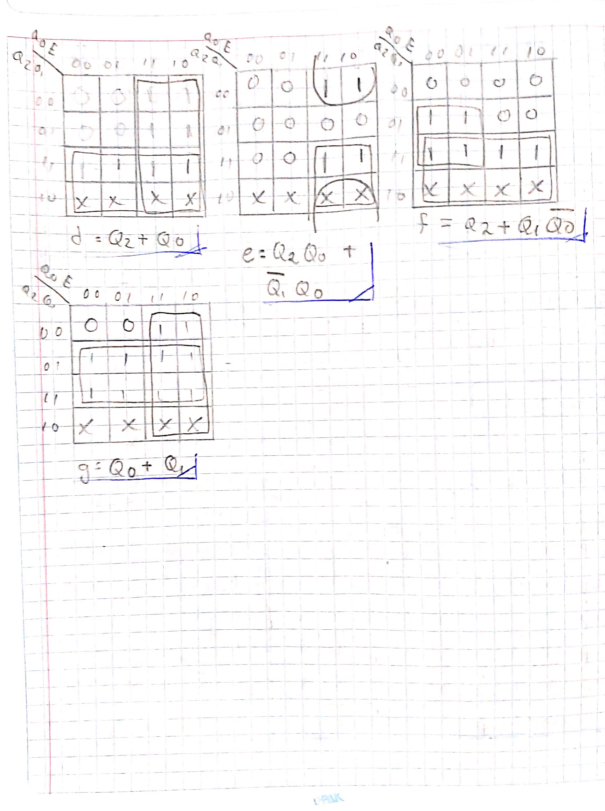 Q0 E
Q2 Q1
00 01 11 10
00 0 0 1 1
01 0 0 1 1
11 1 1 1 1
10 x x x x
d = Q2 + Q0
Q0 E
Q2 Q1
00 01 11 10
00 0 0 1 1
01 0 0 0 0
11 0 0 1 1
10 x x x x
e = Q2 Q0 +
Q̅1 Q0
Q0 E
Q2 Q1
00 01 11 10
00 0 0 0 0
01 1 1 0 0
11 1 1 1 1
10 x x x x
f = Q2 + Q1 Q̅0
Q0 E
Q2 Q1
00 01 11 10
00 0 0 1 1
01 1 1 1 1
11 1 1 1 1
10 x x x x
g = Q0 + Q1